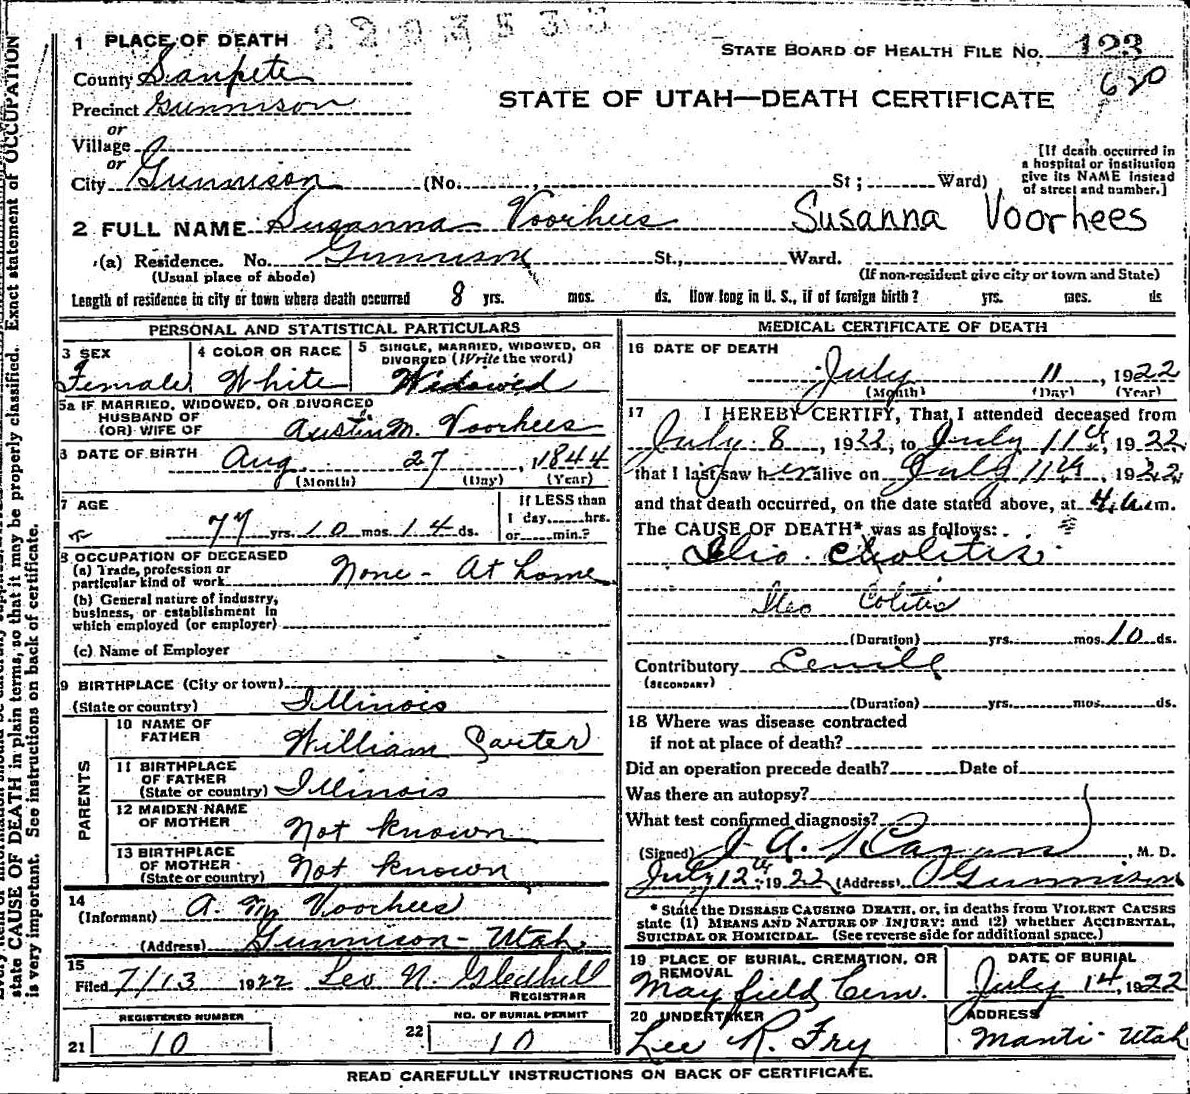 2203535
1 PLACE OF DEATH
STATE BOARD OF HEALTH FILE NO. 123
620
County Sanpete
Precinct Gunnison
or
Village
or
City Gunnison (No. , St ; Ward)
STATE OF UTAH—DEATH CERTIFICATE
[If death occurred in
a hospital or institution
give its NAME instead
of street and number.]
2 FULL NAME Susanna Voorhees Susanna Voorhees
(a) Residence. No. Gunnison St., Ward.
(Usual place of abode) (If non-resident give city or town and State)
Length of residence in city or town where death occurred 8 yrs. mos. ds. How long in U. S., if of foreign birth ? yrs. mos. ds
PERSONAL AND STATISTICAL PARTICULARS
3 SEX
Female
4 COLOR OR RACE
White
5 SINGLE, MARRIED, WIDOWED, OR
DIVORCED (Write the word)
Widowed
5a IF MARRIED, WIDOWED, OR DIVORCED
HUSBAND OF
(OR) WIFE OF Austin M. Voorhees
6 DATE OF BIRTH Aug. 27, 1844
(Month) (Day) (Year)
7 AGE
77 yrs. 10 mos. 14 ds.
If LESS than
1 day, hrs.
or min.?
8 OCCUPATION OF DECEASED
(a) Trade, profession or
particular kind of work None - At home
(b) General nature of industry,
business, or establishment in
which employed (or employer)
(c) Name of Employer
9 BIRTHPLACE (City or town)
(State or country) Illinois
PARENTS
10 NAME OF
FATHER William Carter
11 BIRTHPLACE
OF FATHER
(State or country) Illinois
12 MAIDEN NAME
OF MOTHER Not known
13 BIRTHPLACE
OF MOTHER
(State or country) Not known
14
(Informant) A. M. Voorhees
(Address) Gunnison - Utah
15
Filed 7/13 1922 Leo N. Gledhill
REGISTRAR
REGISTERED NUMBER
21 10
NO. OF BURIAL PERMIT
22 10
MEDICAL CERTIFICATE OF DEATH
16 DATE OF DEATH
July 11, 1922
(Month) (Day) (Year)
17 I HEREBY CERTIFY, That I attended deceased from
July 8, 1922, to July 11th, 1922
that I last saw her alive on July 11th, 1922
and that death occurred, on the date stated above, at 4 a.m.
The CAUSE OF DEATH* was as follows:
Ilio colitis
Ileo Colitis
(Duration) yrs. mos. 10 ds.
Contributory Senile
(SECONDARY)
(Duration) yrs. mos. ds.
18 Where was disease contracted
if not at place of death?
Did an operation precede death? Date of
Was there an autopsy?
What test confirmed diagnosis?
(Signed) J A M. D.
July 12th, 1922 (Address) Gunnison
* State the DISEASE CAUSING DEATH, or, in deaths from VIOLENT CAUSES
state (1) MEANS AND NATURE OF INJURY; and (2) whether ACCIDENTAL,
SUICIDAL OR HOMICIDAL (See reverse side for additional space.)
19 PLACE OF BURIAL, CREMATION, OR
REMOVAL
Mayfield Cem.
DATE OF BURIAL
July 14, 1922
20 UNDERTAKER
Lee R. Fry
ADDRESS
Manti - Utah
READ CAREFULLY INSTRUCTIONS ON BACK OF CERTIFICATE.
state CAUSE OF DEATH in plain terms, so that it may be properly classified. Exact statement of OCCUPATION
is very important. See instructions on back of certificate.